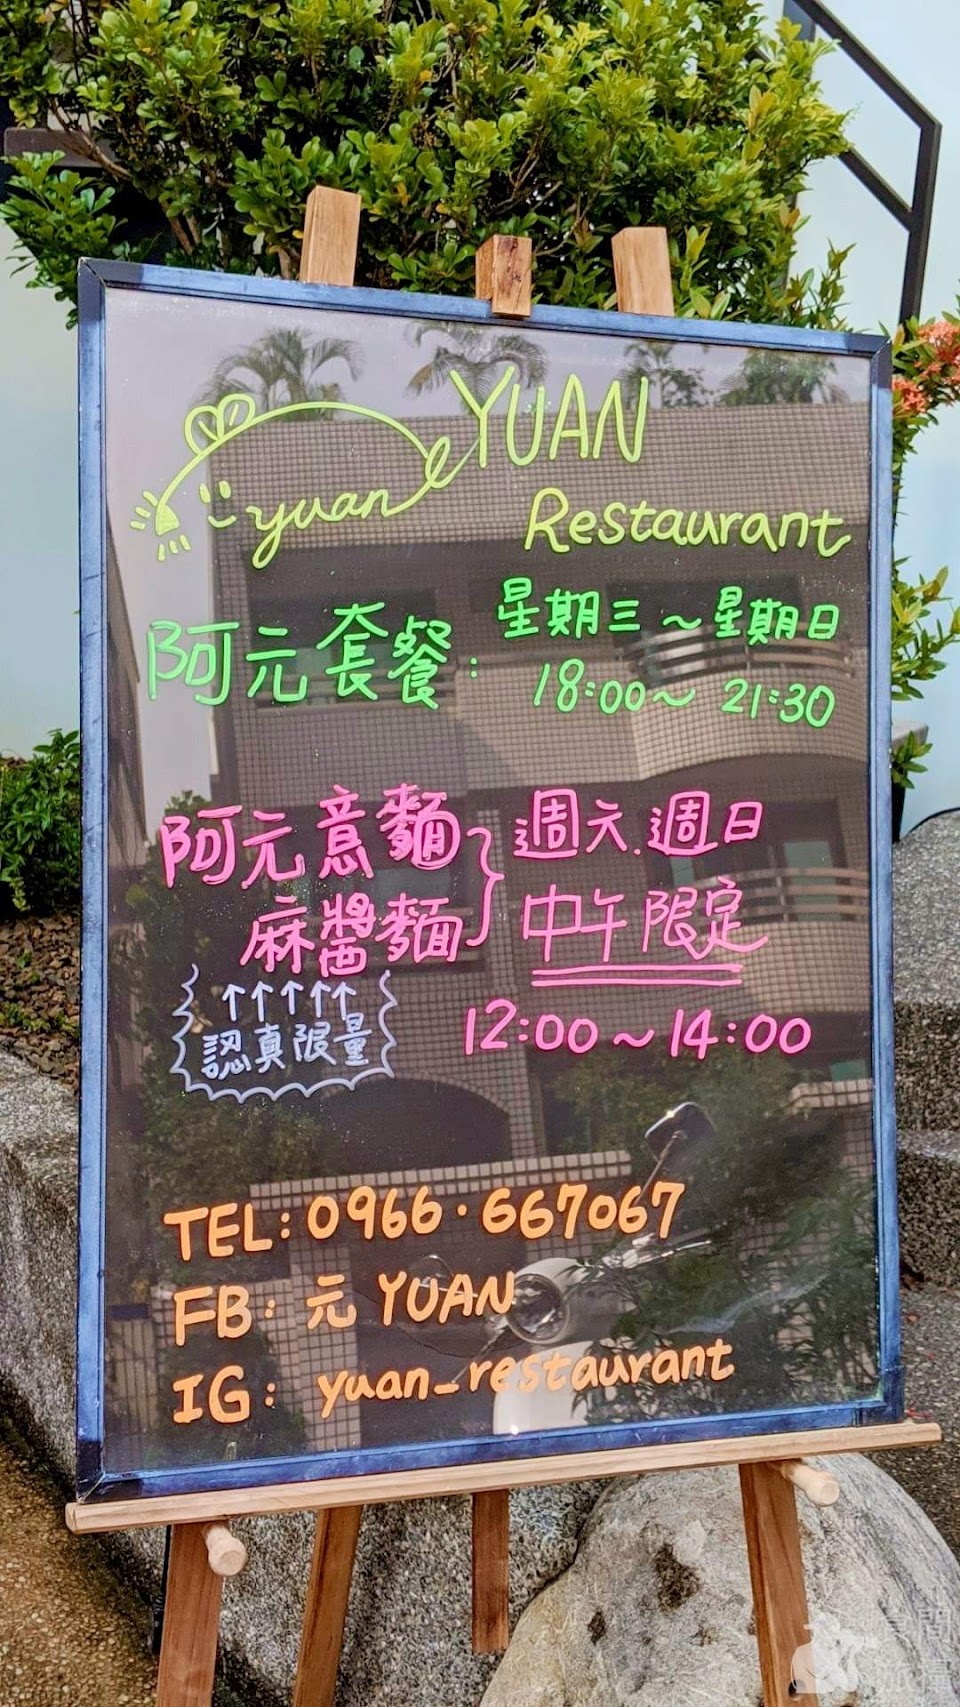 yuan YUAN
Restaurant
阿元套餐: 星期三~星期日
18:00~21:30
阿元意麵 } 週六.週日
麻醬麵 中午限定
↑↑↑↑↑
認真限量
12:00~14:00
TEL:0966·667067
FB: 元 YUAN
IG: yuan_restaurant
旅攝